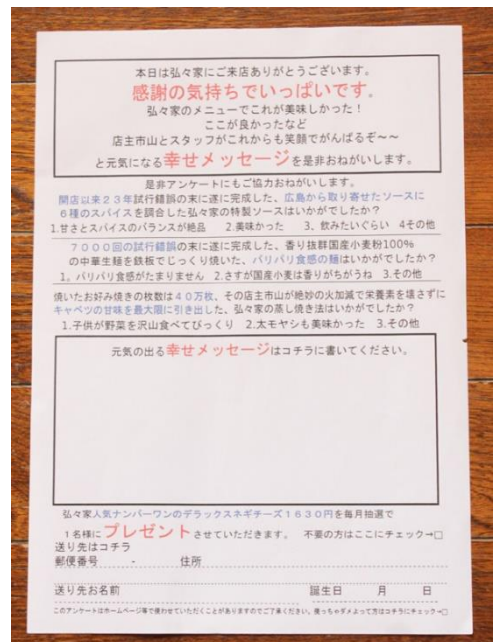 本日は弘々家にご来店ありがとうございます。
感謝の気持ちでいっぱいです。
弘々家のメニューでこれが美味しかった！
ここが良かったなど
店主市山とスタッフがこれからも笑顔でがんばるぞ～～
と元気になる幸せメッセージを是非おねがいします。
是非アンケートにもご協力おねがいします。
開店以来２３年試行錯誤の末に遂に完成した、広島から取り寄せたソースに
６種のスパイスを調合した弘々家の特製ソースはいかがでしたか？
1.甘さとスパイスのバランスが絶品 2.美味かった 3、飲みたいぐらい 4その他
７０００回の試行錯誤の末に遂に完成した、香り抜群国産小麦粉100%
の中華生麺を鉄板でじっくり焼いた、パリパリ食感の麺はいかがでしたか？
1。パリパリ食感がたまりません 2.さすが国産小麦は香りがちがうね 3.その他
焼いたお好み焼きの枚数は４０万枚、その店主市山が絶妙の火加減で栄養素を壊さずに
キャベツの甘味を最大限に引き出した、弘々家の蒸し焼き法はいかがでしたか？
1.子供が野菜を沢山食べてびっくり 2.太モヤシも美味かった 3.その他
元気の出る幸せメッセージはコチラに書いてください。
弘々家人気ナンバーワンのデラックスネギチーズ１６３０円を毎月抽選で
１名様にプレゼントさせていただきます。 不要の方はここにチェック→□
送り先はコチラ
郵便番号 - 住所
送り先お名前 誕生日 月 日
このアンケートはホームページ等で使わせていただくことがありますのでご了承ください。使っちゃダメよって方はコチラにチェック→□